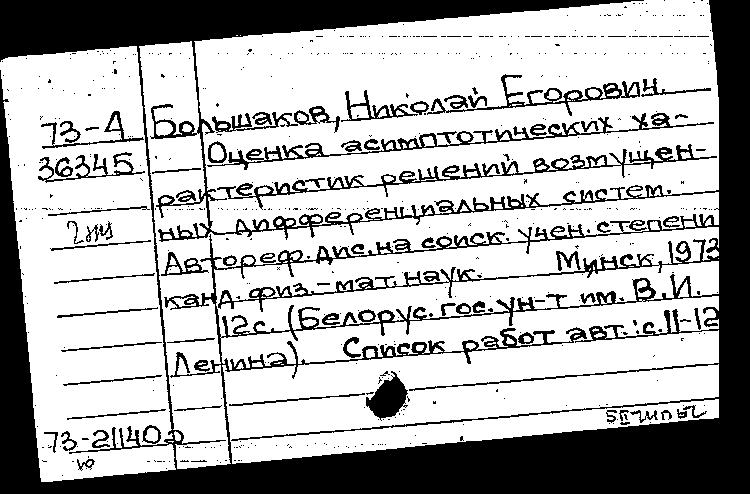 73-А Большаков, Николай Егорович.
36345 Оценка асимптотических ха-
рактеристик решений возмущен-
ных дифференциальных систем.
Автореф. дис. на соиск. учен. степени
канд. физ.-мат. наук. Минск, 1973
12с. (Белорус. гос. ун-т им. В.И.
Ленина). Список работ авт.: с.11-12
73-21140